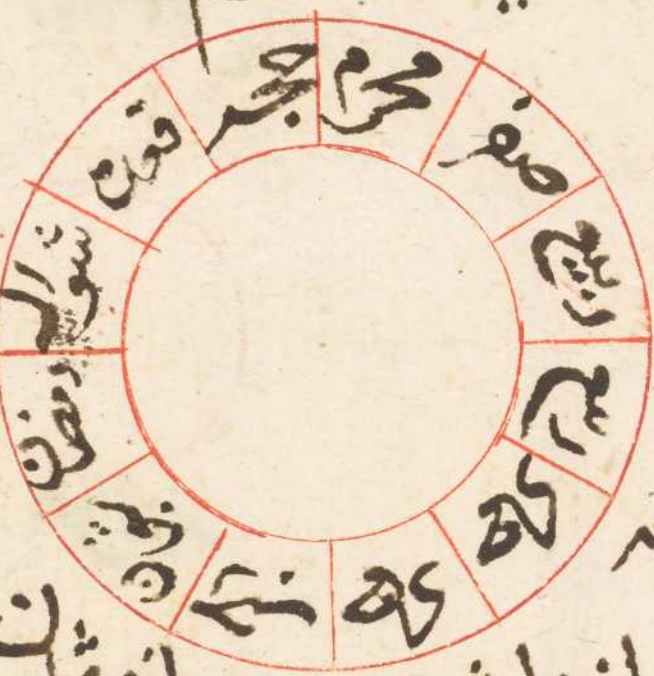 محرم
صفر
ربيع
ربيع
جمادى
جمادى
رجب
شعبان
رمضان
شوال
قعده
حجه